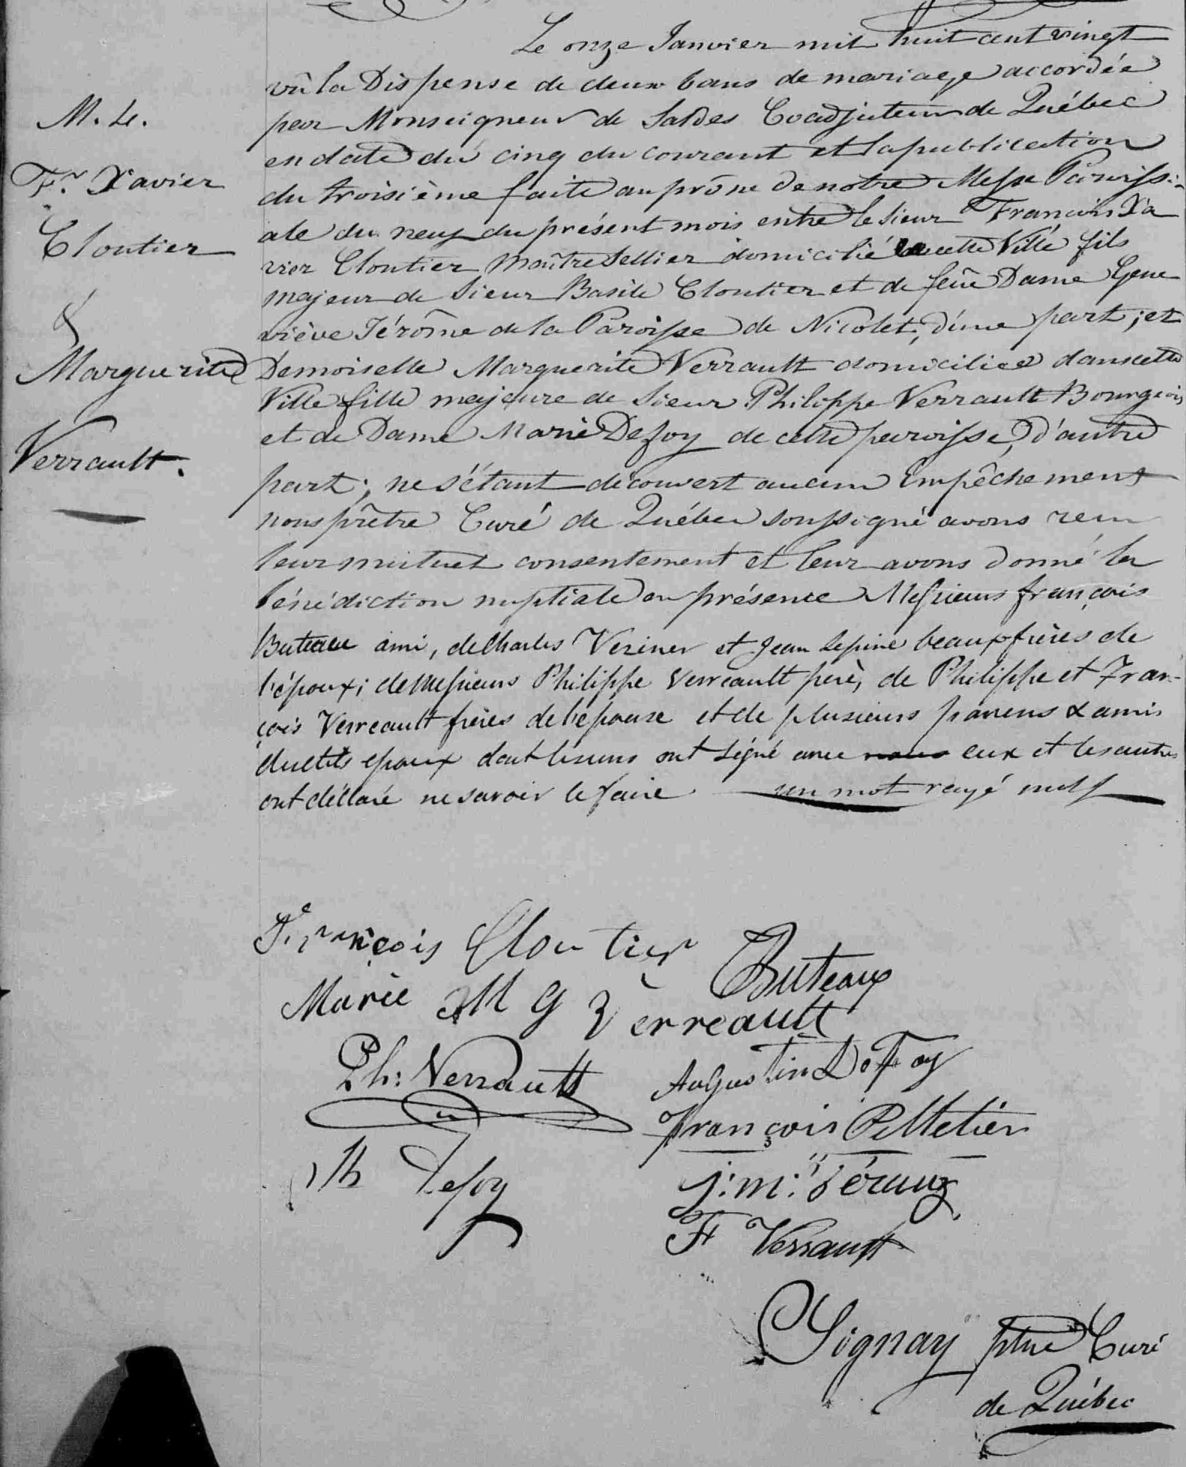 Le onze Janvier mil huit cent vingt
vû la Dispense de deux bans de mariage accordée
par Monseigneur de Saldes Coadjuteur de Québec
en date du cinq du courant et la publication
du troisième faite au prône de notre Messe Paroissi-
ale du neuf du présent mois entre le sieur François Xa
vier Cloutier Maître Sellier domicilié cette Ville fils
majeur de Sieur Basile Cloutier et de feüe Dame Gene
viève Jérôme de la Paroisse de Nicolet, d'une part; et
Demoiselle Marguerite Verrault domiciliée dans cette
Ville fille majeure de Sieur Philippe Verrault Bourgeois
et de Dame Marie Defoy de cette paroisse, d'autre
part; ne s'étant découvert aucun Empêchement
nous prêtre Curé de Québec soussigné avons recu
leur mutuel consentement et leur avons donné la
bénédiction nuptiale en présence Messieurs françois
Buteau ami, de Charles Veziner et Jean Lepine beaux frères de
l'époux; de Messieurs Philippe Verreault père, de Philippe et Fran-
çois Verreault frères de l'épouse et de plusieurs parens & amis
desdits epoux dont lesuns ont signé avec nous eux et les autres
ont déclaré ne savoir le faire. un mot rayé nul
M. 4.
Fr. Xavier
Cloutier
&
Marguerite
Verrault.
François Cloutier
Buteau
Marie M G Verreault
Ph: Verrault
Augustin Defoy
François Pelletier
Th Defoy
j: m:
F Verrault
Signay ptre Curé
de Québec